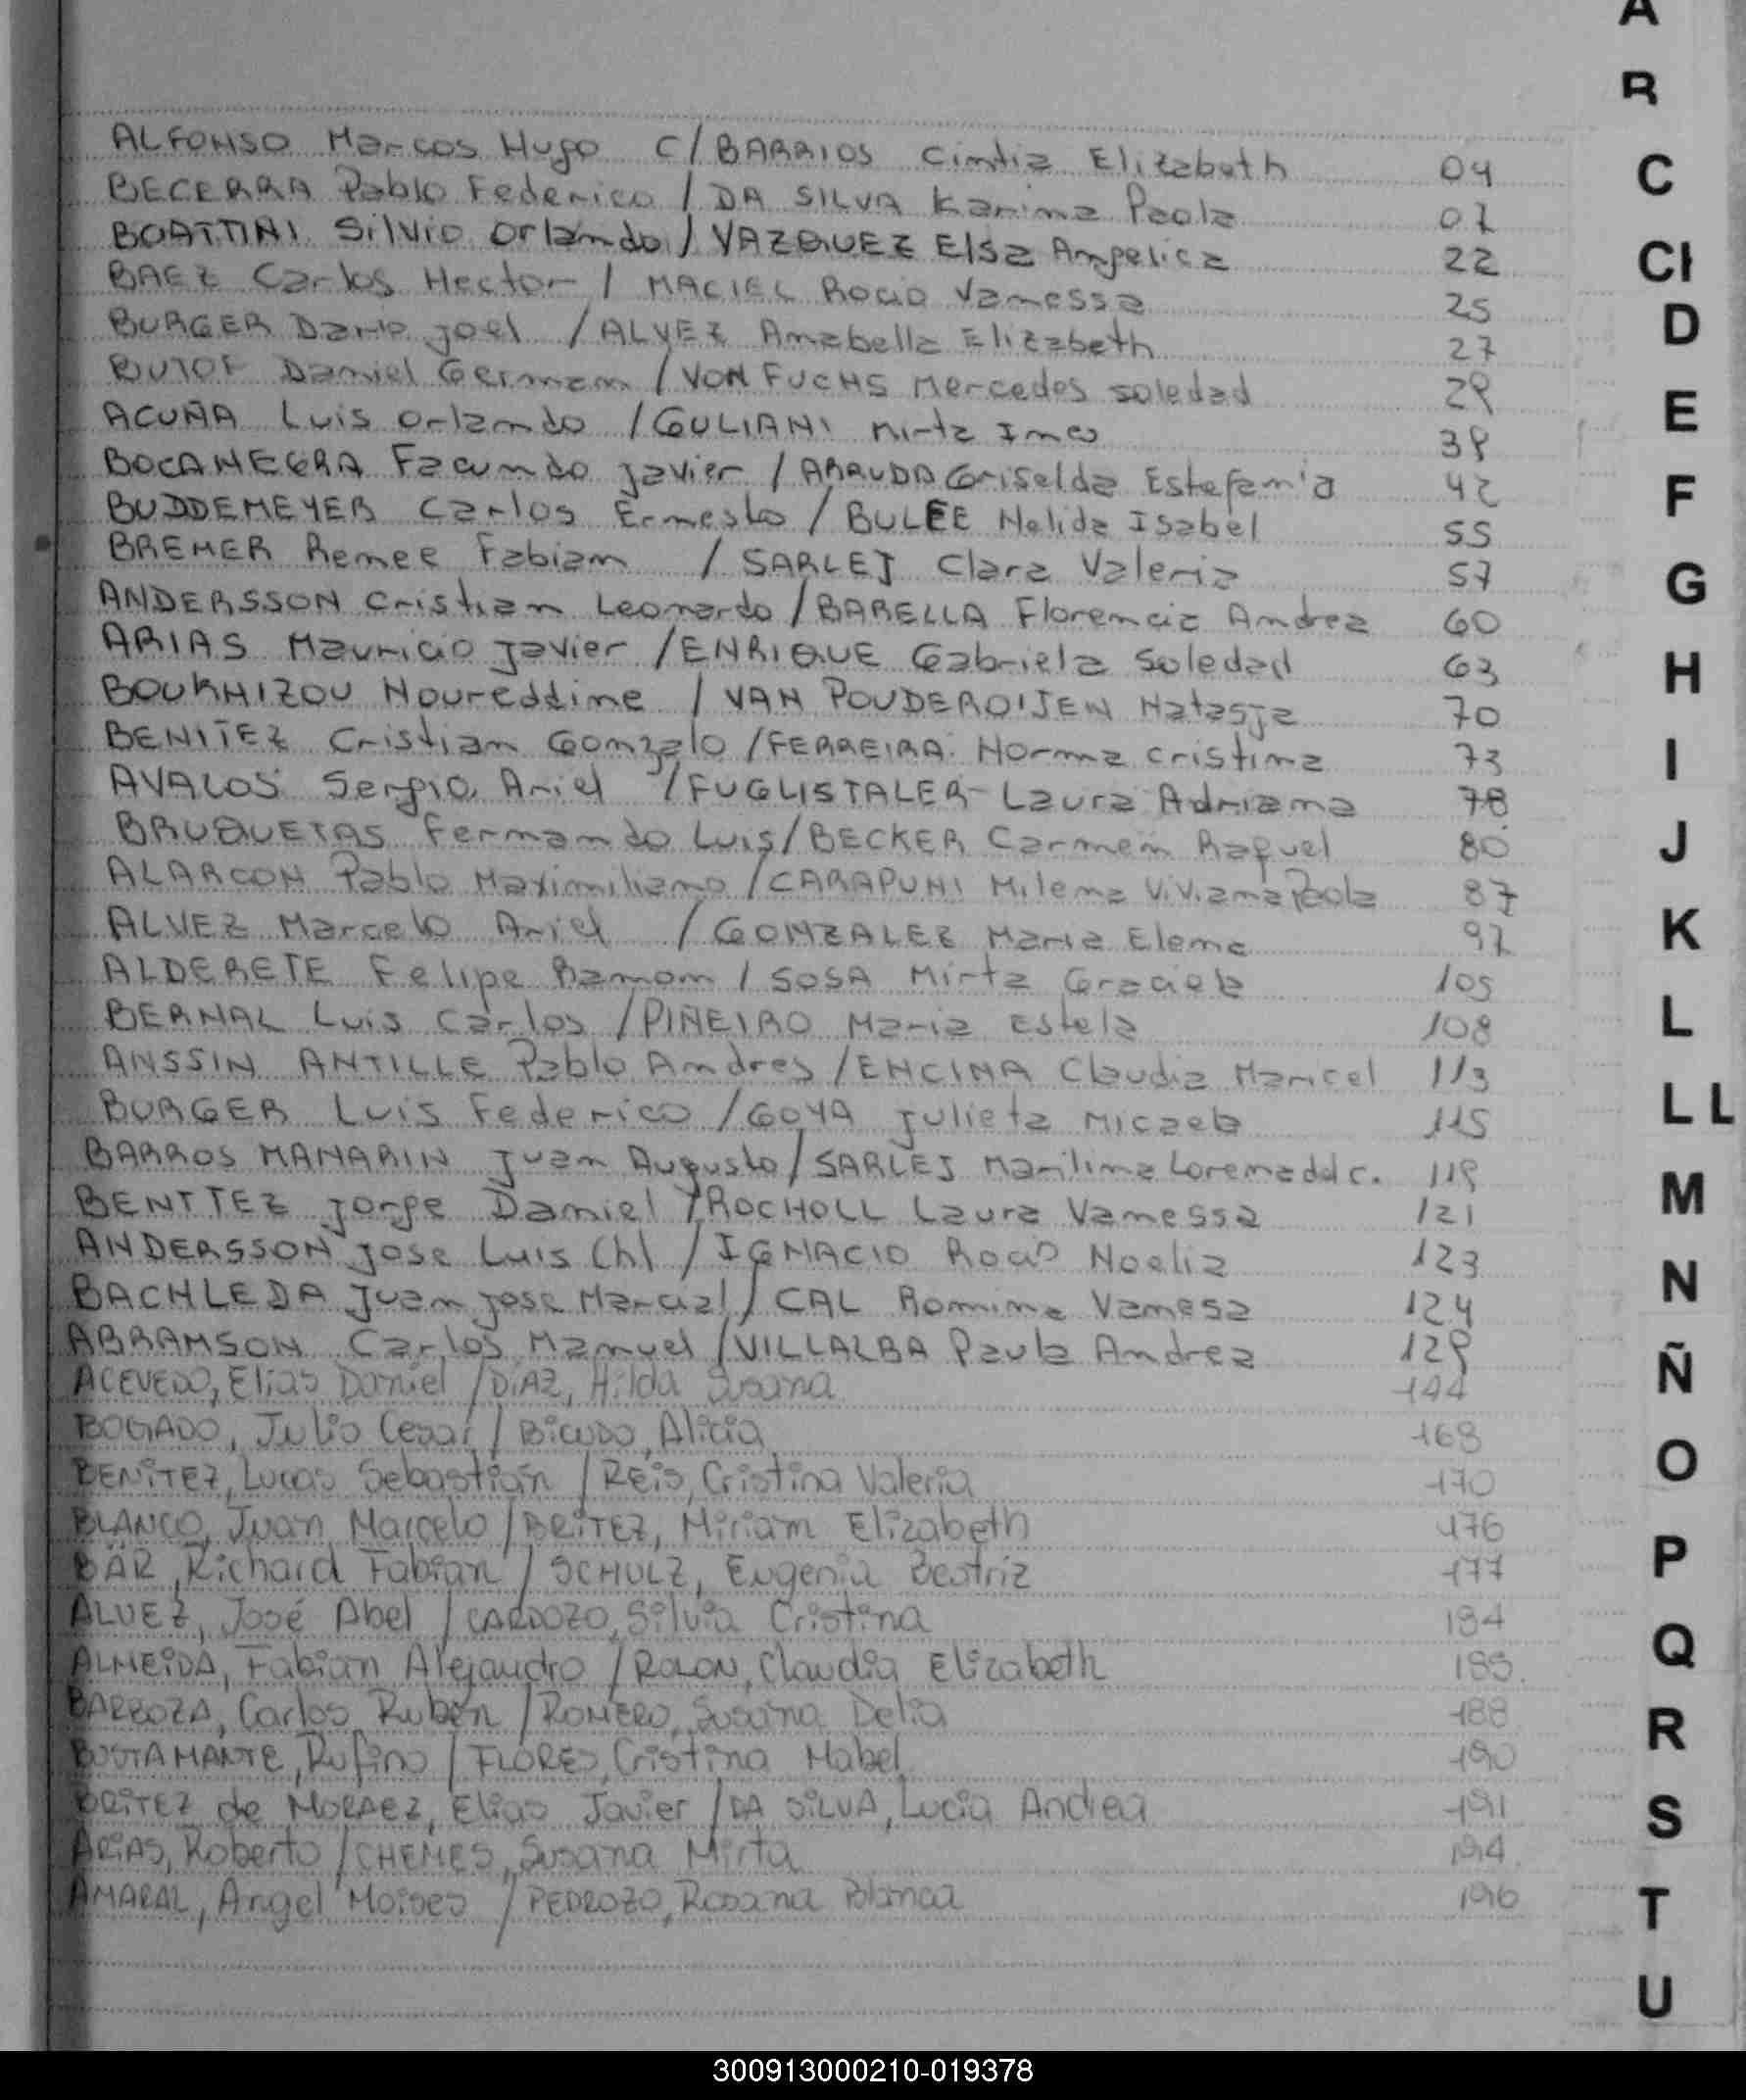 A
B
C
CI
D
E
F
G
H
I
J
K
L
LL
M
N
Ñ
O
P
Q
R
S
T
U
ALFONSO Marcos Hugo C/ BARRIOS Cintia Elizabeth 04
BECERRA Pablo Federico / DA SILVA Karina Paola 07
BOATTINI Silvio Orlando / VAZQUEZ Elsa Angelica 22
BAEZ Carlos Hector / MACIEL Rocio Vanessa 25
BURGER Dario Joel / ALVEZ Anabella Elizabeth 27
BUTOF Daniel German / VON FUCHS Mercedes Soledad 29
ACUÑA Luis Orlando / GULIANI Mirta 39
BOCANEGRA Facundo Javier / ARRUDA Griselda Estefania 42
BUDDEMEYER Carlos Ernesto / BULEE Nelida Isabel 55
BREMER Renee Fabian / SARLEJ Clara Valeria 57
ANDERSSON Cristian Leonardo / BARELLA Florencia Andrea 60
ARIAS Mauricio Javier / ENRIQUE Gabriela Soledad 63
BOUKHIZOU Noureddine / VAN POUDEROIJEN Natasja 70
BENITEZ Cristian Gonzalo / FERREIRA Norma Cristina 73
AVALOS Sergio Ariel / FUGLISTALER Laura Adriana 78
BRUQUETAS Fernando Luis / BECKER Carmen Raquel 80
ALARCON Pablo Maximiliano / CARAPUNI Milena Viviana Paola 87
ALVEZ Marcelo Ariel / GONZALEZ Maria Elena 97
ALDERETE Felipe Ramon / SOSA Mirta Graciela 105
BERNAL Luis Carlos / PIÑEIRO Maria Estela 108
ANSSIN ANTILLE Pablo Andres / ENCINA Claudia Maricel 113
BURGER Luis Federico / GOYA Julieta Micaela 115
BARROS MANARIN Juan Augusto / SARLEJ Marilina Lorena dd c. 119
BENITEZ Jorge Daniel / ROCHOLL Laura Vanessa 121
ANDERSSON Jose Luis Ch / IGNACIO Rocio Noelia 123
BACHLEDA Juan Jose Marcial / CAL Romina Vanesa 124
ABRAMSON Carlos Manuel / VILLALBA Paula Andrea 129
ACEVEDO, Elias Daniel / DIAZ, Hilda Susana 144
BOGADO, Julio Cesar / BICUDO, Alicia 168
BENITEZ, Lucas Sebastián / REIS, Cristina Valeria 170
BLANCO, Juan Marcelo / BRITEZ, Miriam Elizabeth 176
BÄR, Richard Fabian / SCHULZ, Eugenia Beatriz 177
ALVEZ, José Abel / CARDOZO, Silvia Cristina 184
ALMEIDA, Fabian Alejandro / ROLON, Claudia Elizabeth 185
BARROZA, Carlos Ruben / ROMERO, Susana Delia 188
BUSTAMANTE, Rufino / FLORES, Cristina Mabel 190
BRITEZ de MORAEZ, Elias Javier / DA SILVA, Lucia Andrea 191
ARIAS, Roberto / CHEMES, Susana Mirta 194
AMARAL, Angel Moises / PEDROZO, Rosana Blanca 196
300913000210-019378